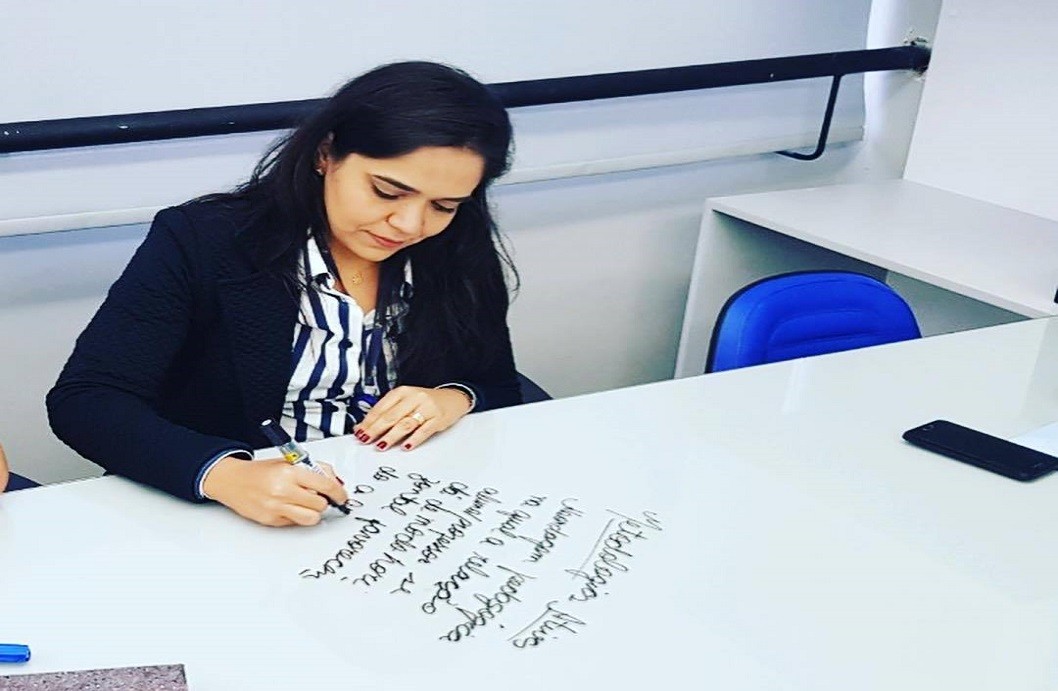 Metodologias Ativas
Abordagem pedagógica
na qual a relação
aluno/professor se
dá de modo hori-
zontal favorecen
do a a